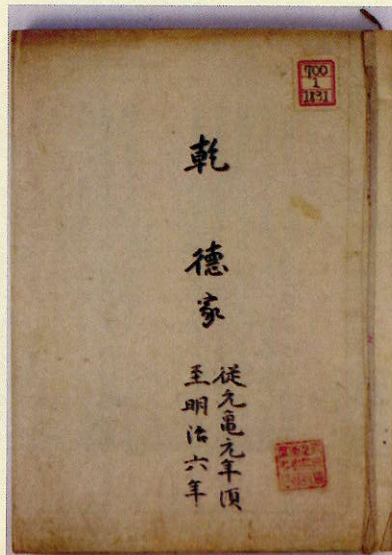 700
1
1831
乾 德家
從元亀元年頃
至明治六年